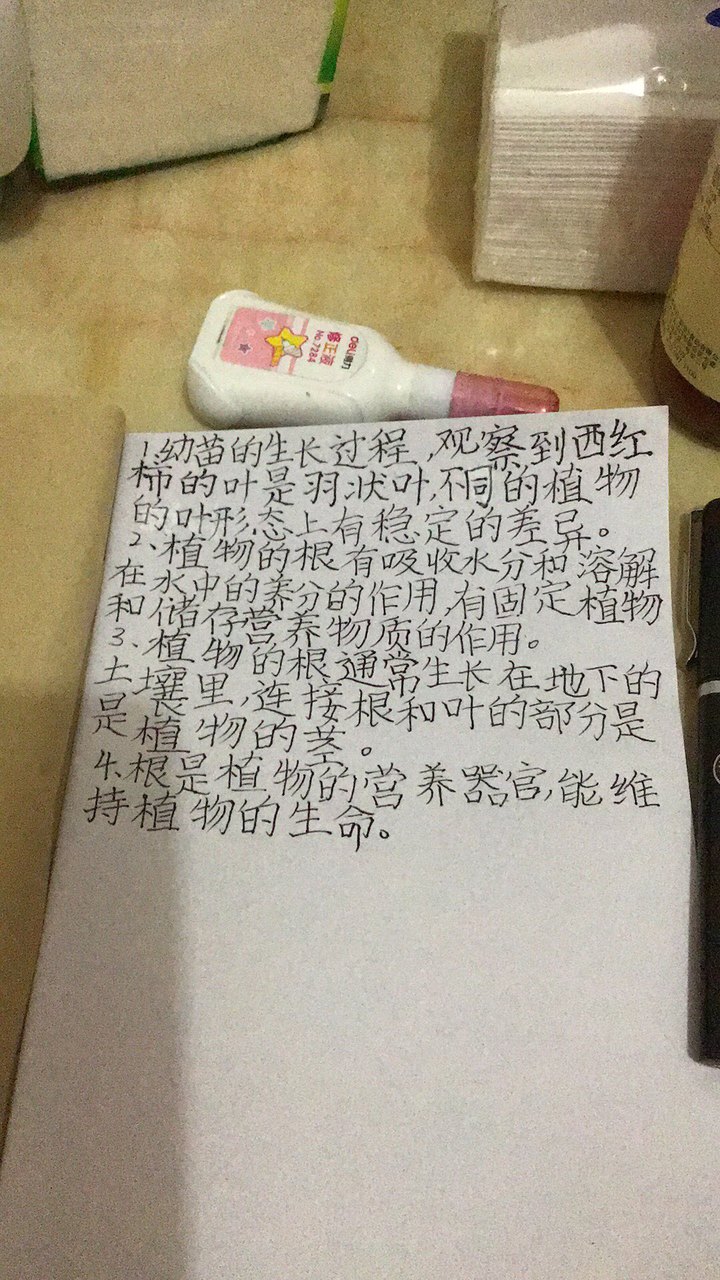 deli得力
修正液
No.7284
1.幼苗的生长过程,观察到西红
柿的叶是羽状叶,不同的植物
的叶形态上有稳定的差异。
2、植物的根有吸收水分和溶解
在水中的养分的作用,有固定植物
和储存营养物质的作用。
3、植物的根通常生长在地下的
土壤里,连接根和叶的部分是
是植物的茎。
4、根是植物的营养器官,能维
持植物的生命。